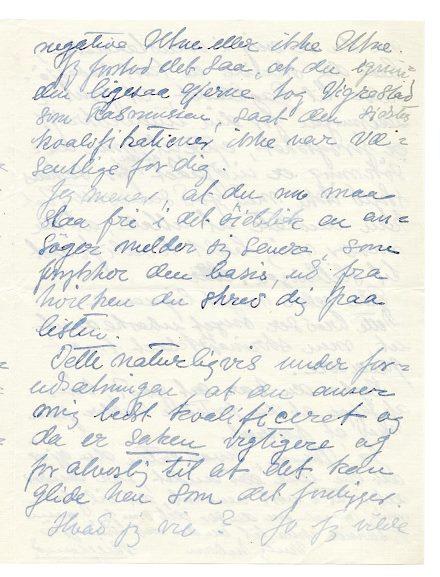 negative Utne eller ikke Utne.
Jeg forstod det saa, at du egent=
den ligesaa gjerne tog Vigrestad
som Rasmussen, saat den sidstes
koalifikationer ikke var væ=
sentlige for dig.
Jeg mener, at du nu maa
staa fri i det öieblik en an=
söger melder sig senere, som
forykker den basis, ud fra
hvilken du skrev dig paa
listen.
Dette naturligvis under for=
udsætningen at du anser
mig bedst koalificeret og
da er saken vigtigere og
for alvorlig til at det kan
glide hen som det foreligger.
Hvad jeg vil? Jo jeg vilde